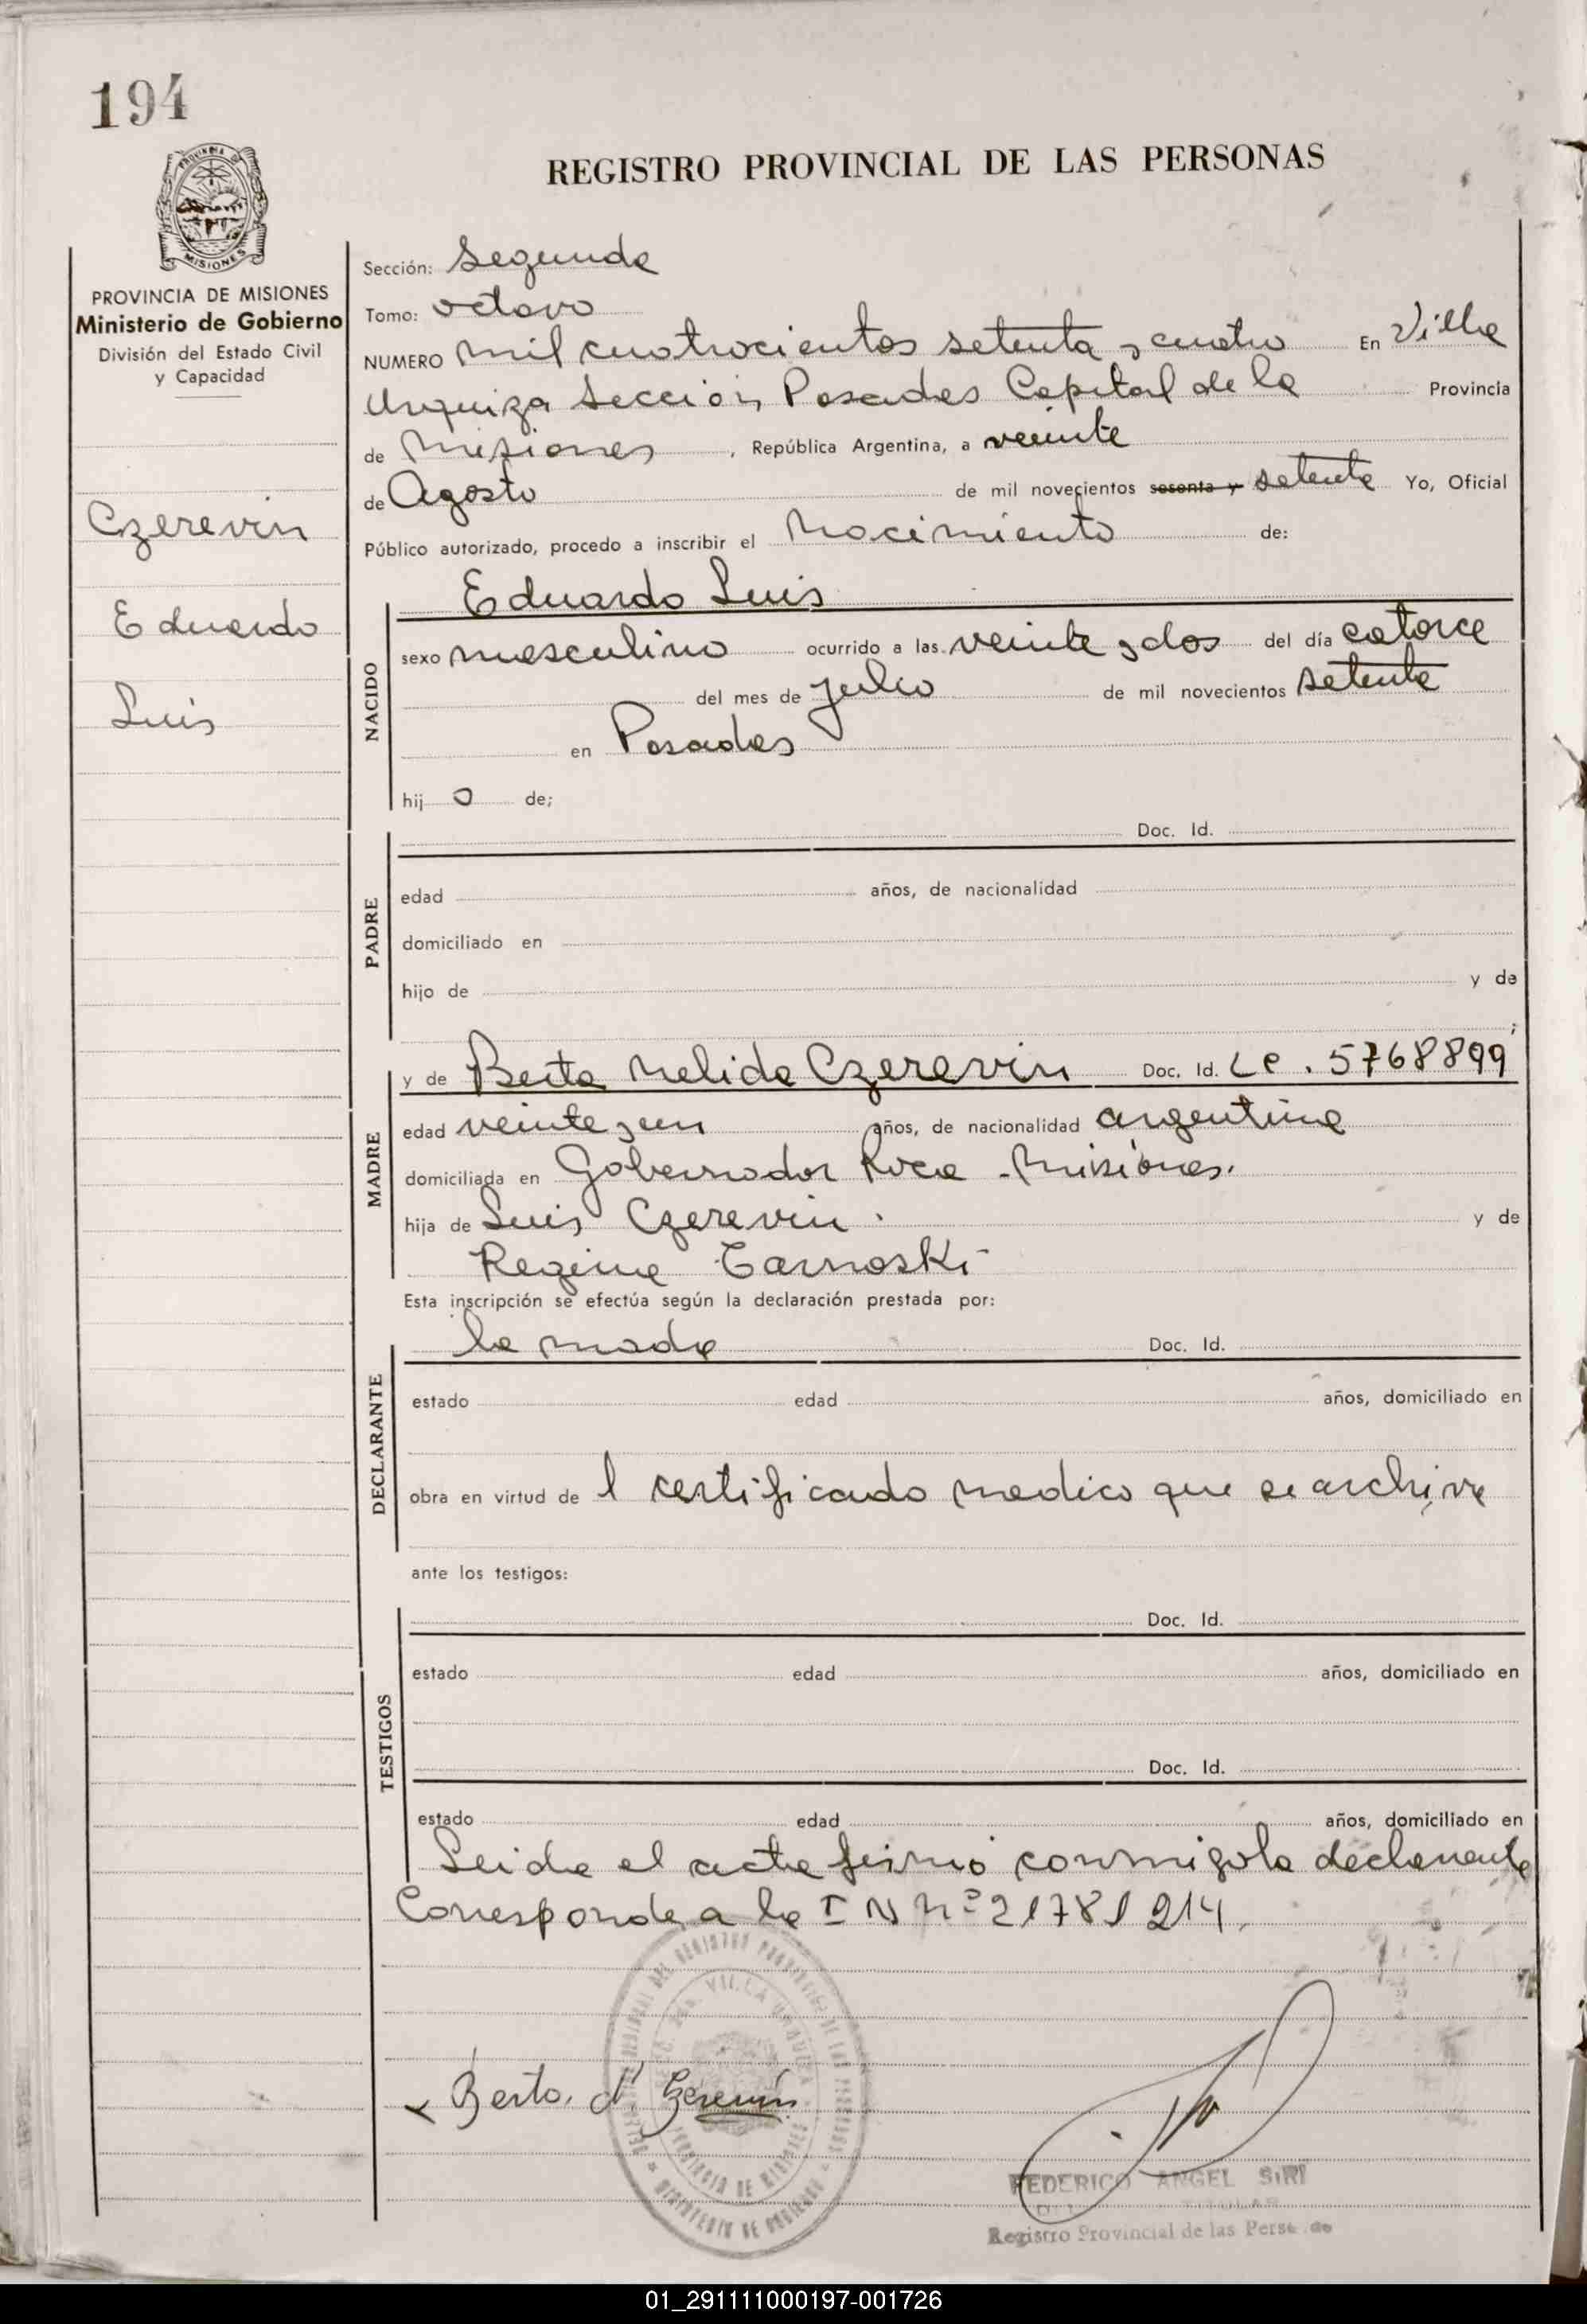 194
REGISTRO PROVINCIAL DE LAS PERSONAS
PROVINCIA DE
MISIONES
PROVINCIA DE MISIONES
Ministerio de Gobierno
División del Estado Civil
y Capacidad
Czerevin
Eduardo
Luis
Sección: Segunda
Tomo: octavo
NUMERO mil cuatrocientos setenta y cuatro En Villa
Urquiza Sección Posadas Capital de la Provincia
de Misiones, República Argentina, a veinte
de Agosto de mil novecientos sesenta y setenta Yo, Oficial
Público autorizado, procedo a inscribir el Nacimiento de:
NACIDO
Eduardo Luis
sexo masculino ocurrido a las veinte y dos del día catorce
del mes de julio de mil novecientos setenta
en Posadas
hij o de;
PADRE
Doc. Id.
edad años, de nacionalidad
domiciliado en
hijo de y de
;
MADRE
y de Berta Nelida Czerevin Doc. Id. LC. 5768899
edad veinte y un años, de nacionalidad argentina
domiciliada en Gobernador Roca - Misiones.
hija de Luis Czerevin. y de
Regina Tarnoski
Esta inscripción se efectúa según la declaración prestada por:
DECLARANTE
la madre Doc. Id.
estado edad años, domiciliado en
obra en virtud de l certificado medico que se archiva
ante los testigos:
TESTIGOS
Doc. Id.
estado edad años, domiciliado en
Doc. Id.
estado edad años, domiciliado en
Leida el acta firmó conmigo la declarante
Corresponde a la I N Nº 21781214.
Berta. N. Czerevin
FEDERICO ANGEL SIRI
TITULAR
Registro Provincial de las Personas
01_291111000197-001726